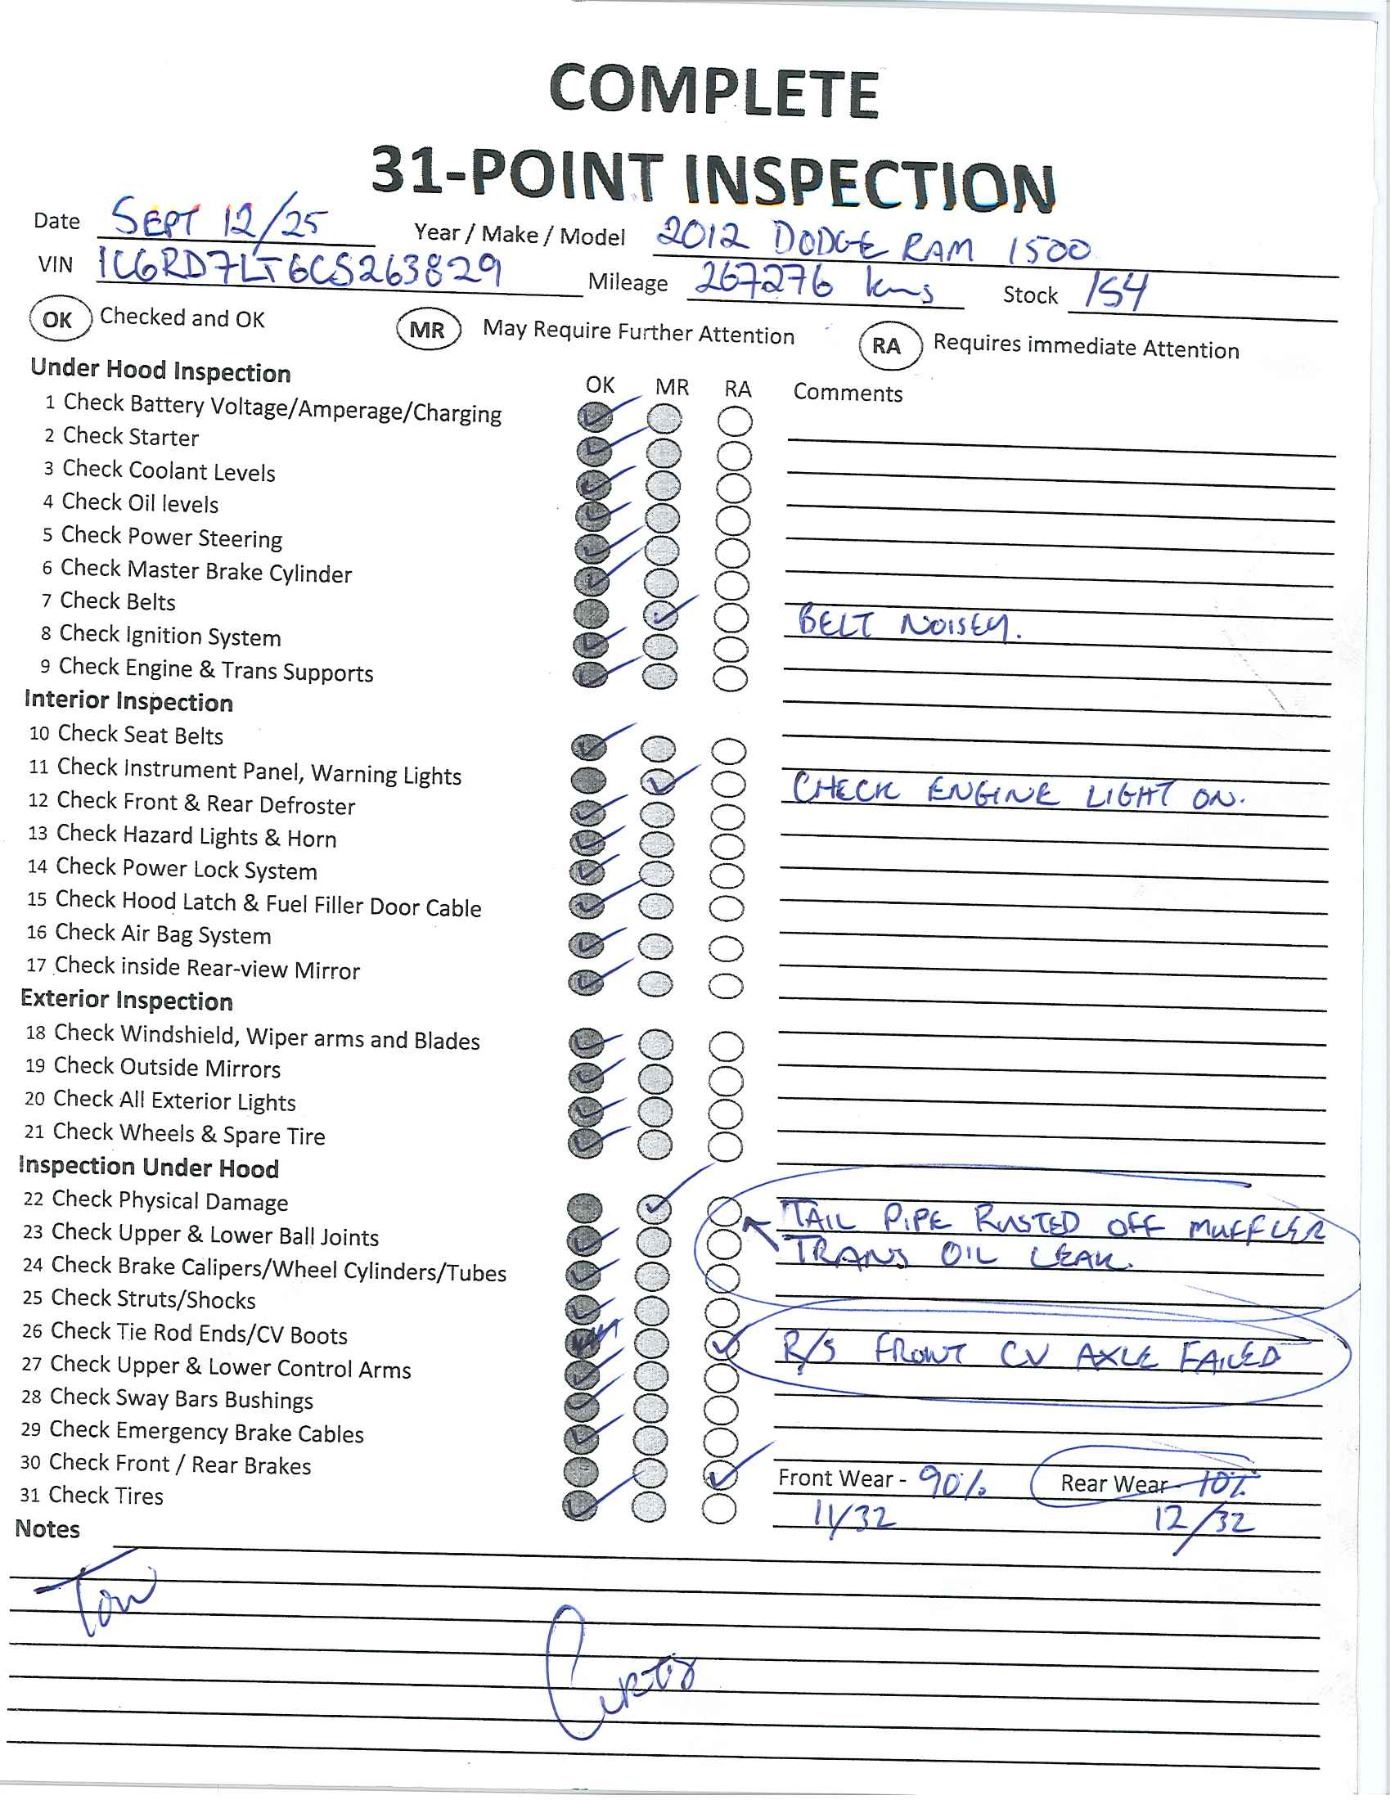 COMPLETE
31-POINT INSPECTION
Date SEPT 12/25 Year / Make / Model 2012 DODGE RAM 1500
VIN 1C6RD7LT6CS263829 Mileage 267276 kms Stock 154
OK Checked and OK MR May Require Further Attention RA Requires immediate Attention
Under Hood Inspection OK MR RA Comments
1 Check Battery Voltage/Amperage/Charging
2 Check Starter
3 Check Coolant Levels
4 Check Oil levels
5 Check Power Steering
6 Check Master Brake Cylinder
7 Check Belts BELT NOISEY.
8 Check Ignition System
9 Check Engine & Trans Supports
Interior Inspection
10 Check Seat Belts
11 Check Instrument Panel, Warning Lights CHECK ENGINE LIGHT ON.
12 Check Front & Rear Defroster
13 Check Hazard Lights & Horn
14 Check Power Lock System
15 Check Hood Latch & Fuel Filler Door Cable
16 Check Air Bag System
17 Check inside Rear-view Mirror
Exterior Inspection
18 Check Windshield, Wiper arms and Blades
19 Check Outside Mirrors
20 Check All Exterior Lights
21 Check Wheels & Spare Tire
Inspection Under Hood
22 Check Physical Damage TAIL PIPE RUSTED OFF MUFFLER
23 Check Upper & Lower Ball Joints TRANS OIL LEAK.
24 Check Brake Calipers/Wheel Cylinders/Tubes
25 Check Struts/Shocks
26 Check Tie Rod Ends/CV Boots R/S FRONT CV AXLE FAILED
27 Check Upper & Lower Control Arms
28 Check Sway Bars Bushings
29 Check Emergency Brake Cables
30 Check Front / Rear Brakes Front Wear - 90% Rear Wear - 10%
31 Check Tires 11/32 12/32
Notes
Tom
Curtis